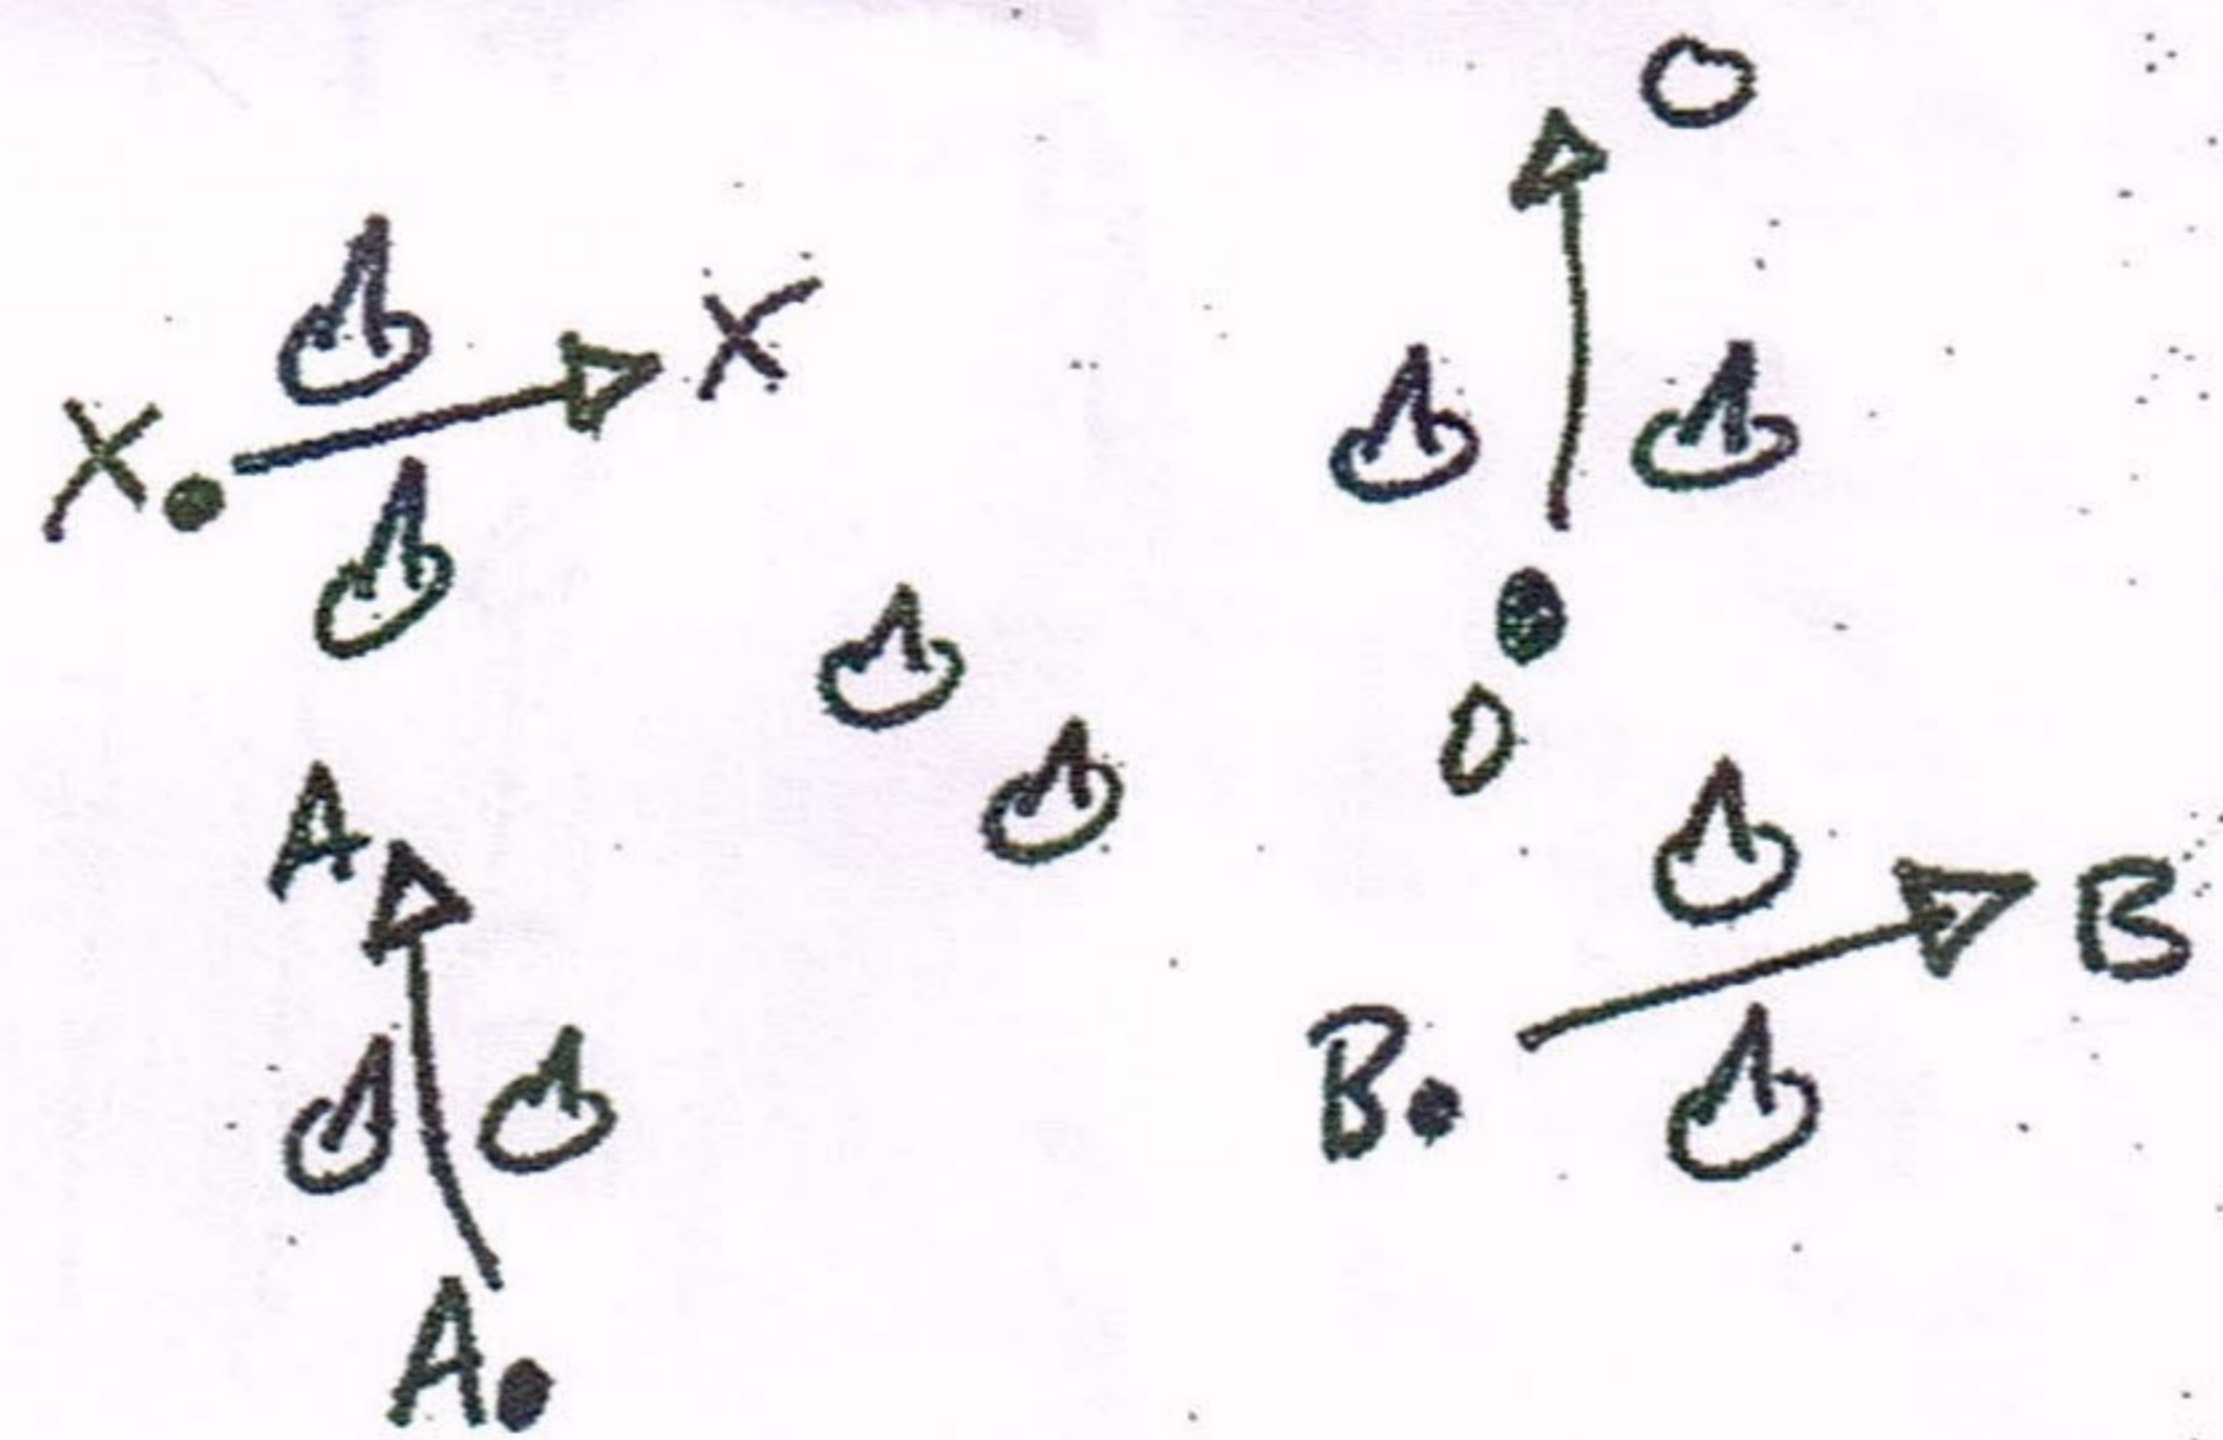 O
X
X
O
A
B
B
A